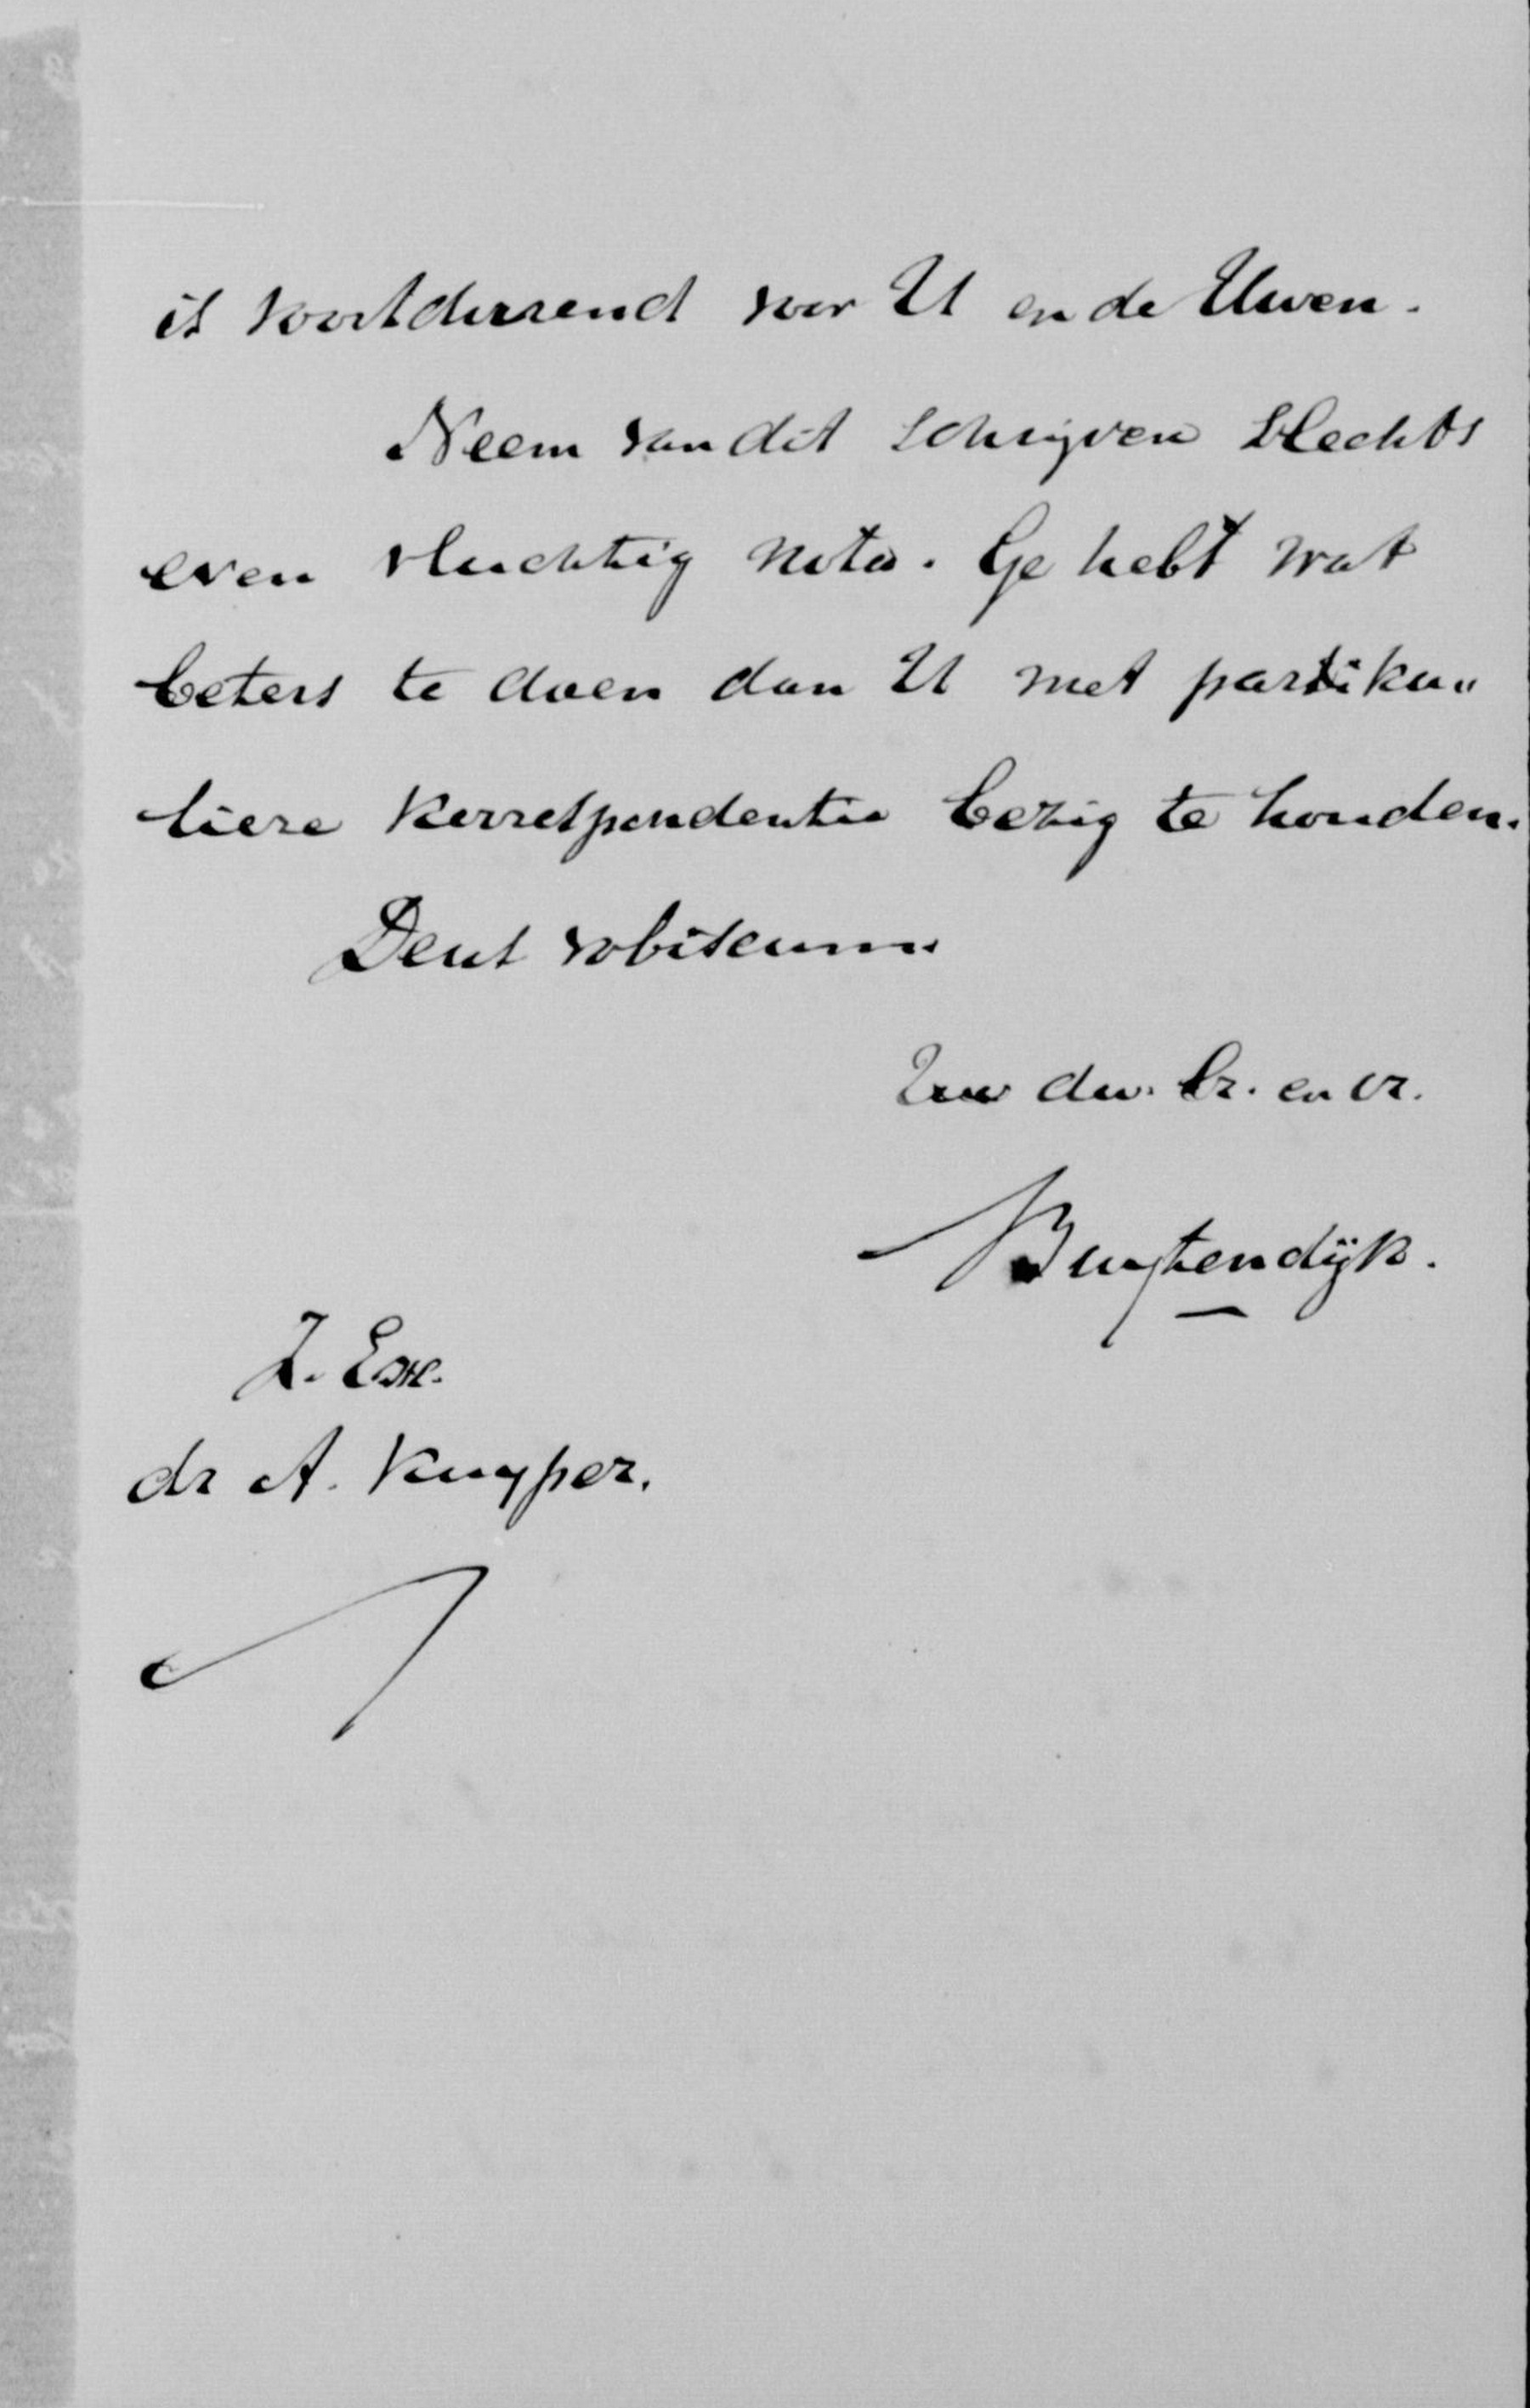 is voortdurend voor U en de Uwen.
Neem van dit schrijven slechts
even vluchtig nota. Ge hebt wat
beters te doen dan U met partiku„
liere korrespondentie bezig te houden.
Deus vobiscum.
Uw dw. br. en vr.
Buytendijk.
Z. Exc.
dr A. Kuyper.